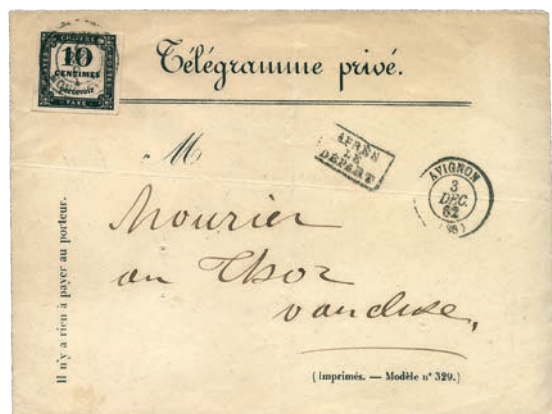 CHIFFRE
POSTES
10
CENTIMES
à percevoir
POSTES
TAXE
Télégramme privé.
M
APRÈS
LE
DÉPART
AVIGNON
3
DEC.
62
(86)
Mourier
au Thor
vaucluse,
Il n'y a rien à payer au porteur.
(Imprimés. — Modèle n° 329.)